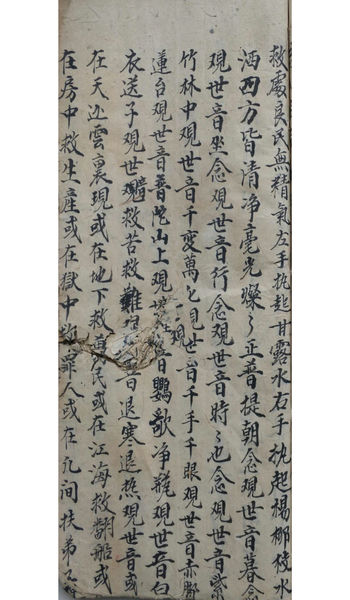 救處良民無精氣左手执起甘露水右手执起楊柳枝水
洒四方皆清净毫光燦〻正普提朝念观世音暮念
观世音坐念观世音行念观世音時〻也念观世音紫
竹林中观世音千变萬化观世音千手千眼观世音赤脚
蓮台观世音普陀山上观世音鸚歌净瓶观世音白
衣送子观世音救苦救難观世音退寒退热观世音或
在天边雲裏現或在地下救萬民或在江海救翻船或
在房中救生産或在獄中 罪人或在凡间扶弟子